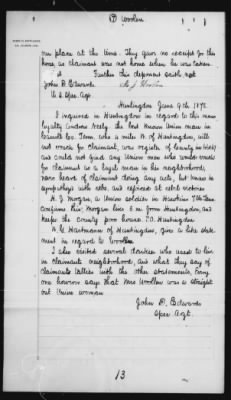 7) Woolen
our place at the time. They gave no receipt for the
horse, as claimant was not home when he was taken.
Further this deponent saith not.
John D. Edwards
U. S. Spec. Agt.
Huntingdon June 9th 187
I inquired in Huntingdon in regard to this man's
loyalty. best known Union man in
Carroll Co. Tenn. who a mile N. of Huntingdon, will
not vouch for claimant, was register of county in 
and could not find any Union men who would vouch
for claimant as a loyal man in his neighborhood,
nor heard of claimant doing any acts, but knows in
sympathies with rebs, and rejoiced at rebel victories.
H. J. Morgan, a Union soldier in Hawkins' 7th Tenn.
Cav. lives 5 m from Huntingdon, and
keeps the county poor house P.O. Huntingdon.
Hartmann of Huntingdon, gives a like state-
ment in regard to Woollen.
I also visited several darkies who used to live
in claimant's neighborhood, and what they say of
claimant's tallies with the other statements, every
one however says that Mrs Woollen was a straight
out Union woman
John D. Edwards
Spec. Agt.
13